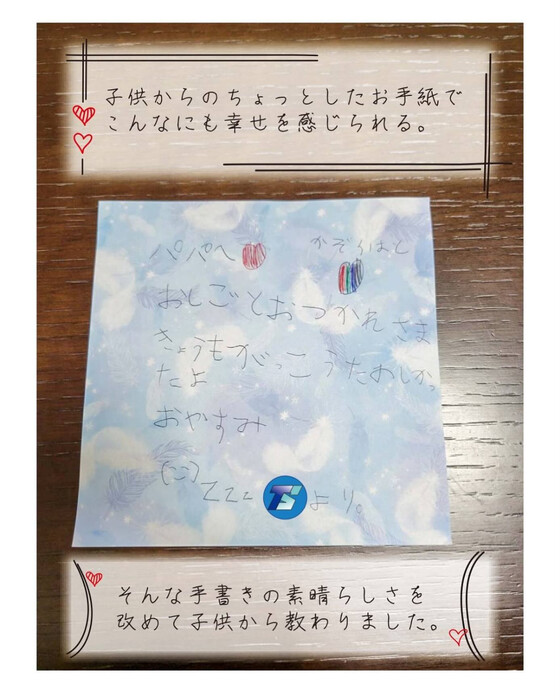 子供からのちょっとしたお手紙で
こんなにも幸せを感じられる。
パパへ
かぞくはと
おしごとおつかれさま
きょうもがっこうたのしかっ
たよ
おやすみ
より。
そんな手書きの素晴らしさを
改めて子供から教わりました。